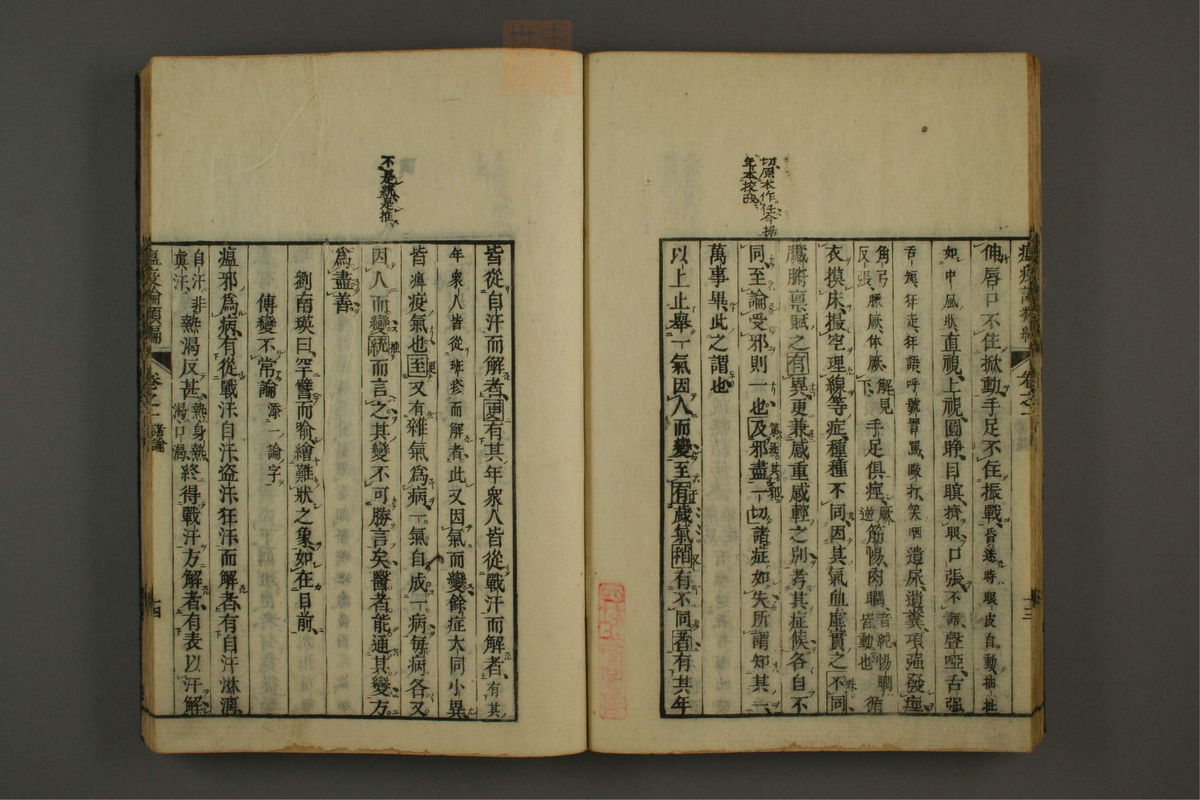 瘟疫論類編
卷之一
諸論
十三
切原本作任今据
年本校改
伸唇口不住掀動手足不住振戰昏迷時眼皮自動抽扯
如中風狀直視上視圓睁目瞑擠眼口張不語聲啞舌強
舌短狂走狂語呼號詈罵毆打笑哂遺尿遺糞項強發痙
角弓反張厥厥体厥解見下手足俱痙厥逆筋惕肉瞤音純惕瞤皆動也循
衣摸床撮空理線等症種種不同因其氣血虛實之不同
臟腑禀賦之有異更兼感重感輕之別考其症候各自不
同至論受邪則一也及邪盡一切諸症如失所謂知其一
萬事畢此之謂也
以上止舉一氣因人而變至有歲氣稍有不同者有其年
不是統是推
皆從自汗而解者更有其年衆人皆從戰汗而解者有其
年衆人皆從斑疹而解者此又因氣而變餘症大同小異
皆瘟疫氣也至又有雜氣爲病一氣自成一病毎病各又
因人而變統而言之其變不可勝言矣醫者能通其變方
爲盡善
劉南瑛曰罕譬而喻繪難狀之象如在目前
傳變不常論添一論字
瘟邪爲病有從戰汗自汗盗汗狂汗而解者有自汗淋漓
自汗非眞汗熱渴反甚熱身熱渴口渴終得戰汗方解者有表以汗解
瘟疫論類編
卷之一
諸論
十四